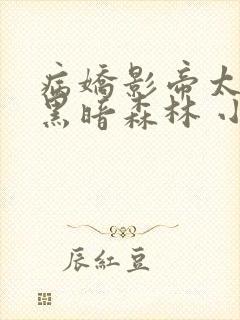 病嬌影帝太
黑暗森林 小
辰紅豆